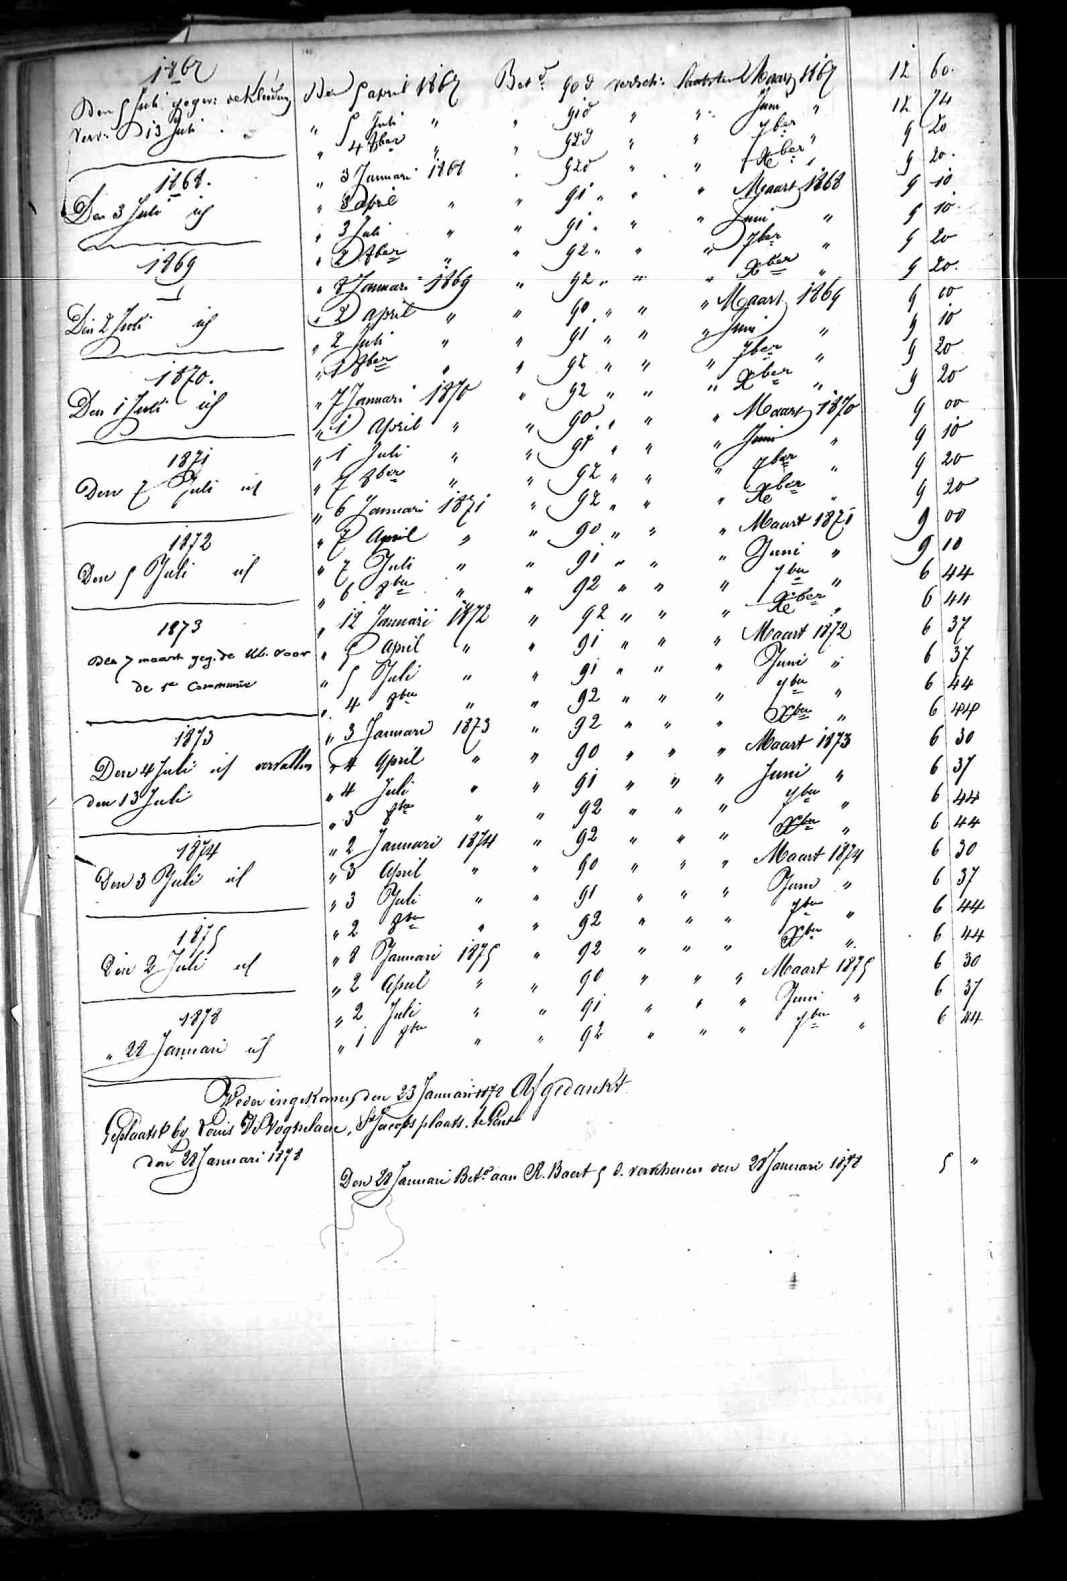 1867
Den 5 Juli gegev: de kleeding
verv: D 13 Juli
1868.
Den 3 Juli id
1869
Den 2 Juli id
1870.
Den 1 Juli id
1871
Den 7 Juli id
1872
Den 5 Juli id
1873
Den 7 maart geg. de kl. voor
de 1e Communie
1873
Den 4 Juli id vervallen
den 13 Juli
1874
Den 3 Juli id
1875
Den 2 Juli id
1878
" 22 Januari id
Den 5 april 1867 Betd 90 d versch: Maart 1867 12 60.
" 5 Juli " " 91 d " " Juni " 12 74
" 4 8ber " " 92 d " " 7ber " 9 20
" 3 Januari 1868 " 92 d " " Xber " 9 20.
" 3 april " " 91 " " " Maart 1868 9 10
" 3 Juli " " 91 " " " Juni " 9 10.
" 2 8ber " " 92 " " " 7ber " 9 20
" 8 Januari 1869 " 92 " " " Xber " 9 20.
" 2 april " " 90 " " " Maart 1869 9 00
" 2 Juli " " 91 " " " Juni " 9 10
" 1 8ber " " 92 " " " 7ber " 9 20
" 7 Januari 1870 " 92 " " " Xber " 9 20
" 1 April " " 90 " " " Maart 1870 9 00
" 1 Juli " " 91 " " " Juni " 9 10
" 7 8ber " " 92 " " " 7ber " 9 20
" 6 Januari 1871 " 92 " " " Xber " 9 20
" 7 April " " 90 " " " Maart 1871 9 00
" 7 Juli " " 91 " " " Juni " 9 10
" 6 8ber " " 92 " " " 7ber " 6 44
" 12 Januarij 1872 " 92 " " " Xber " 6 44
" 5 April " " 91 " " " Maart 1872 6 37
" 5 Juli " " 91 " " " Juni " 6 37
" 4 8ber " " 92 " " " 7ber " 6 44
" 3 Januari 1873 " 92 " " " Xber " 6 44
" 4 April " " 90 " " " Maart 1873 6 30
" 4 Juli " " 91 " " " Juni " 6 37
" 3 8ber " " 92 " " " 7ber " 6 44
" 2 Januari 1874 " 92 " " " Xber " 6 44
" 3 April " " 90 " " " Maart 1874 6 30
" 3 Juli " " 91 " " " Juni " 6 37
" 2 8ber " " 92 " " " 7ber " 6 44
" 8 Januari 1875 " 92 " " " Xber " 6 44
" 2 April " " 90 " " " Maart 1875 6 30
" 2 Juli " " 91 " " " Juni " 6 37
" 1 8ber " " 92 " " " 7ber " 6 44
Weder ingekomen den 23 Januari 1878 Afgedankt
Geplaatst by Louis De Vogselaere, St Jacobs plaats, te Gent
den 28 Januari 1878
Den 28 Januari Betd aan R. Baert 5 d. verschenen den 28 Januari 1878 5 "